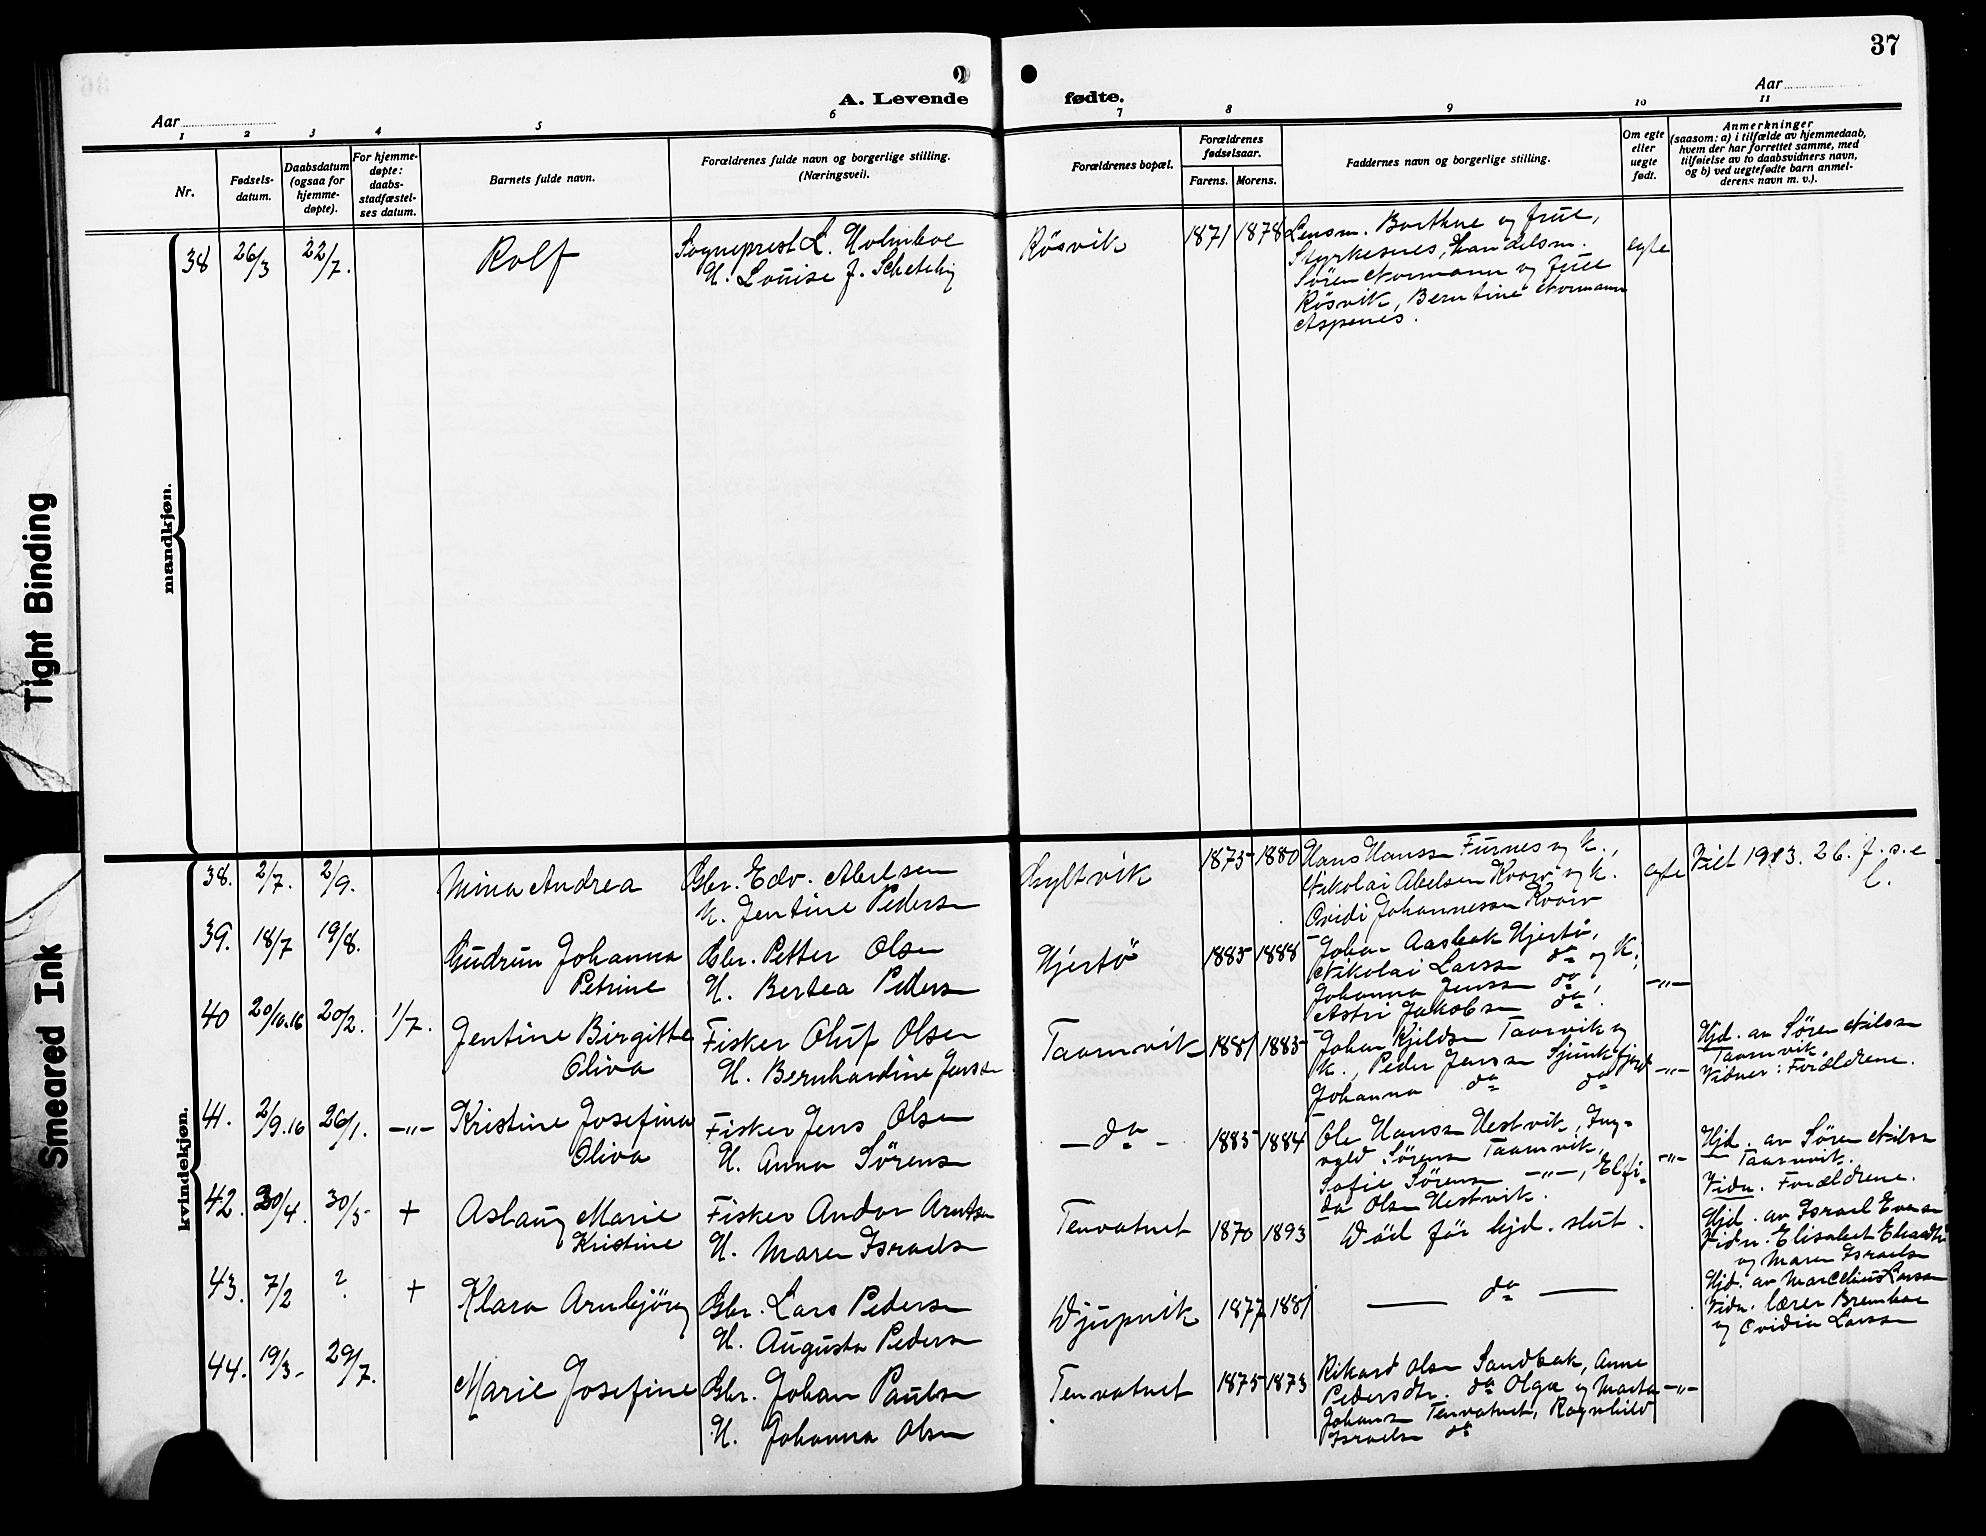 37
A. Levende fødte.
Aar
Aar
1 2 3 4 5 6 7 8 9 10 11
Nr.
Fødsels-
datum.
Daabsdatum
(ogsaa for
hjemme-
døpte).
For hjemme-
døpte:
daabs-
stadfæstel-
ses datum.
Barnets fulde navn.
Forældrenes fulde navn og borgerlige stilling.
(Næringsvei).
Forældrenes bopæl.
Forældrenes
fødselsaar.
Farens. Morens.
Faddernes navn og borgerlige stilling.
Om egte
eller
uegte
født.
Anmerkninger
(saasom: a) i tilfælde av hjemmedaab,
hvem der har forrettet samme, med
tilføielse av to daabsvidners navn,
og b) ved uegtefødte barn anmel-
derens navn m. v.).
mandkjøn.
38 26/3 22/7. Rolf
Sogneprest L. Holmboe
H. Louise f. Schetelig
Røsvik 1871 1878
Lensm. Borthne og frue,
Styrkesnes, Handelsm.
Sören Normann og frue
Røsvik, Berntine Normann
Aspenes.
egte
kvindekjøn.
38. 2/7. 2/9. Mina Andrea
Gbr. Edv. Abelsen
H. Jentine Pedersn
Gyltvik 1875 1880
Hans Hanssn Furnes og K.,
Nikolai Abelsen Kvarv og K.
Ovidi Johannessn Kvarv
egte
Viet 1913. 2 b. f. s. e
39. 18/7 19/8. Gudrun Johanna
Petrine
Gbr. Petter Olsen
H. Bertea Pedersn
Hjertö 1885 1888
Johan Aasbak Hjertö,
Nikolai Larssn do og K.,
Johanna Jenssn do,
Astri Jakobsn do.
-"-
40 20/10.16 20/2. 1/7. Jentine Birgitte
Oliva
Fisker Oluf Olsen
H. Bernhardine Jenssn
Taarnvik 1881 1885
Johan Kjeldsn Taarnvik og
K., Peder Jenssn Sjunkfjord
Johanna do do
-"-
Hjd. av Søren Nilssn
Taarnvik.
Vidner: Forældrene.
41. 2/9.16 26/1. -"- Kristine Josefina
Oliva
Fisker Jens Olsen
H. Anna Sørensn
-do- 1885 1884
Ole Hanssn Hestvik, Ing-
vald Sørensn Taarnvik,
Sofie Sørensn -"-, Elfi-
da Olsn Hestvik.
-"-
Hjd. av Søren Nilssn
Taarnvik.
Vidn. Forældrene.
42. 30/4. 30/5 + Aslaug Marie
Kristine
Fisker Andor Arntsn
H. Maren Israelsn
Tenvatnet 1870 1893
Död för hjd. slut.
Hjd. av Israel Evensn
Vidn. Elisabet
og Maren Israelsn
43. 7/2 ? + Klara Arnbjörg
Gbr. Lars Pedersn
H. Augusta Pedersn
Djupvik 1877 1881
do
Hjd. av Marcelius Larssn
Vidn. lærer Brembae
og Ovidia Larssn
44. 19/3 29/7. Marie Josefine
Gbr. Johan Paulsn
H. Johanna Olsn
Tenvatnet 1875 1873
Rikard Olsn Sandbak, Anne
Pedersdtr. do Olga og Marta
Johansn Tenvatnet, Ragnhild
Israelsn do
-"-
Tight Binding
Smeared Ink